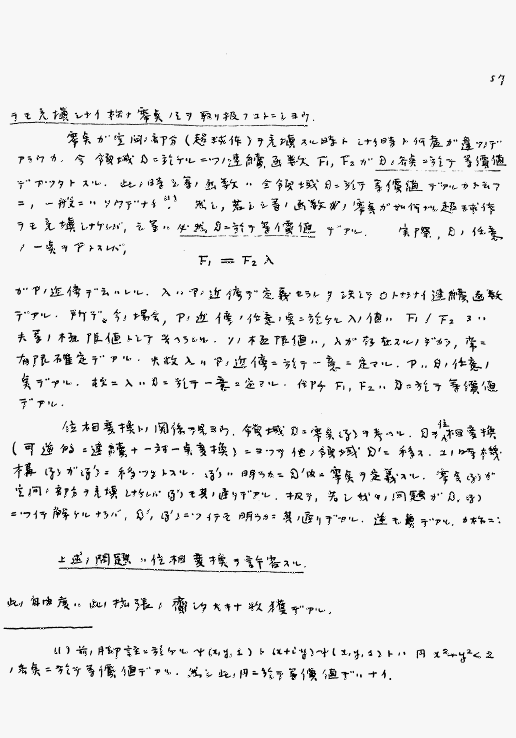 57
ヲモ充填シナイ様ナ零点ノミヲ取リ扱フコトニシヨウ.
零点ガ空間ノ部分(超球体)ヲ充填スル時トシナイ時ト何處ガ違フノデ
アラウカ. 今領域 D ニ於ケル二ツノ連續函数 F₁, F₂ ガ D ノ各点ニ於テ等價値
デアツタトスル. 此ノ時之等ノ函数ハ全領域 D ニ於テ等價値デアルカト云フ
ニ, 一般ニハソウデナイ⁽¹⁾. 然シ, 若シ之等ノ函数ノ零点ガ如何ナル超球体
ヲモ充填シナケレバ, 之等ハ必然 D ニ於テ等價値デアル. 実際, D ノ任意
ノ一点ヲ P トスレバ,
F₁ = F₂ λ
ガ P ノ近傍デ云ハレル. λ ハ P ノ近傍デ定義セラレタ決シテ 0 トナラナイ連續函数
デアル. 所デ, 今ノ場合, P ノ近傍ノ任意ノ点ニ於ケル λ ノ値ハ F₁ / F₂ 又ハ
夫等ノ極限値トシテ ソノ極限値ハ, λ ガ存在スルノデカラ, 常ニ
有限確定デアル. 夫故 λ ハ P ノ近傍ニ於テ一意ニ定マル. P ハ D ノ任意ノ
点デアル. 故ニ λ ハ D ニ於テ一意ニ定マル. 即チ F₁, F₂ ハ D ニ於テ等價値
デアル.
位相変換トノ関係ヲ見ヨウ. 領域 D ニ零点 (f) ヲ考ヘル. D ヲ位相変換
(可逆的ニ連續ナ一対一点変換) ニヨツテ他ノ領域 D' ニ移ス. ソノ時機
構 (f) ガ (f') ニ移ツタトスル. (f') ハ明ラカニ D' 零点ヲ定義スル. 零点 (f) ガ
空間ノ部分ヲ充填シナケレバ (f') モ其ノ通リデアル. 扱テ, 若シ我々ノ問題ガ D, (f)
ニツイテ解ケルナラバ, D', (f') ニツイテモ明ラカニ其ノ通リデアル. 逆モ真デアル. カ様ニ:
上述ノ問題ハ位相変換ヲ許容スル.
此ノ自由度ハ此ノ拡張ノ齎シタ大ナ收獲デアル.
(1) 前ノ脚註ニ於ケル ψ(x, y, z) ト (x+iy)ψ(x, y, z) トハ 円 x²+y²<2
ノ各点ニ於テ等價値デアル. 然シ此ノ円ニ於テ等價値デハナイ.